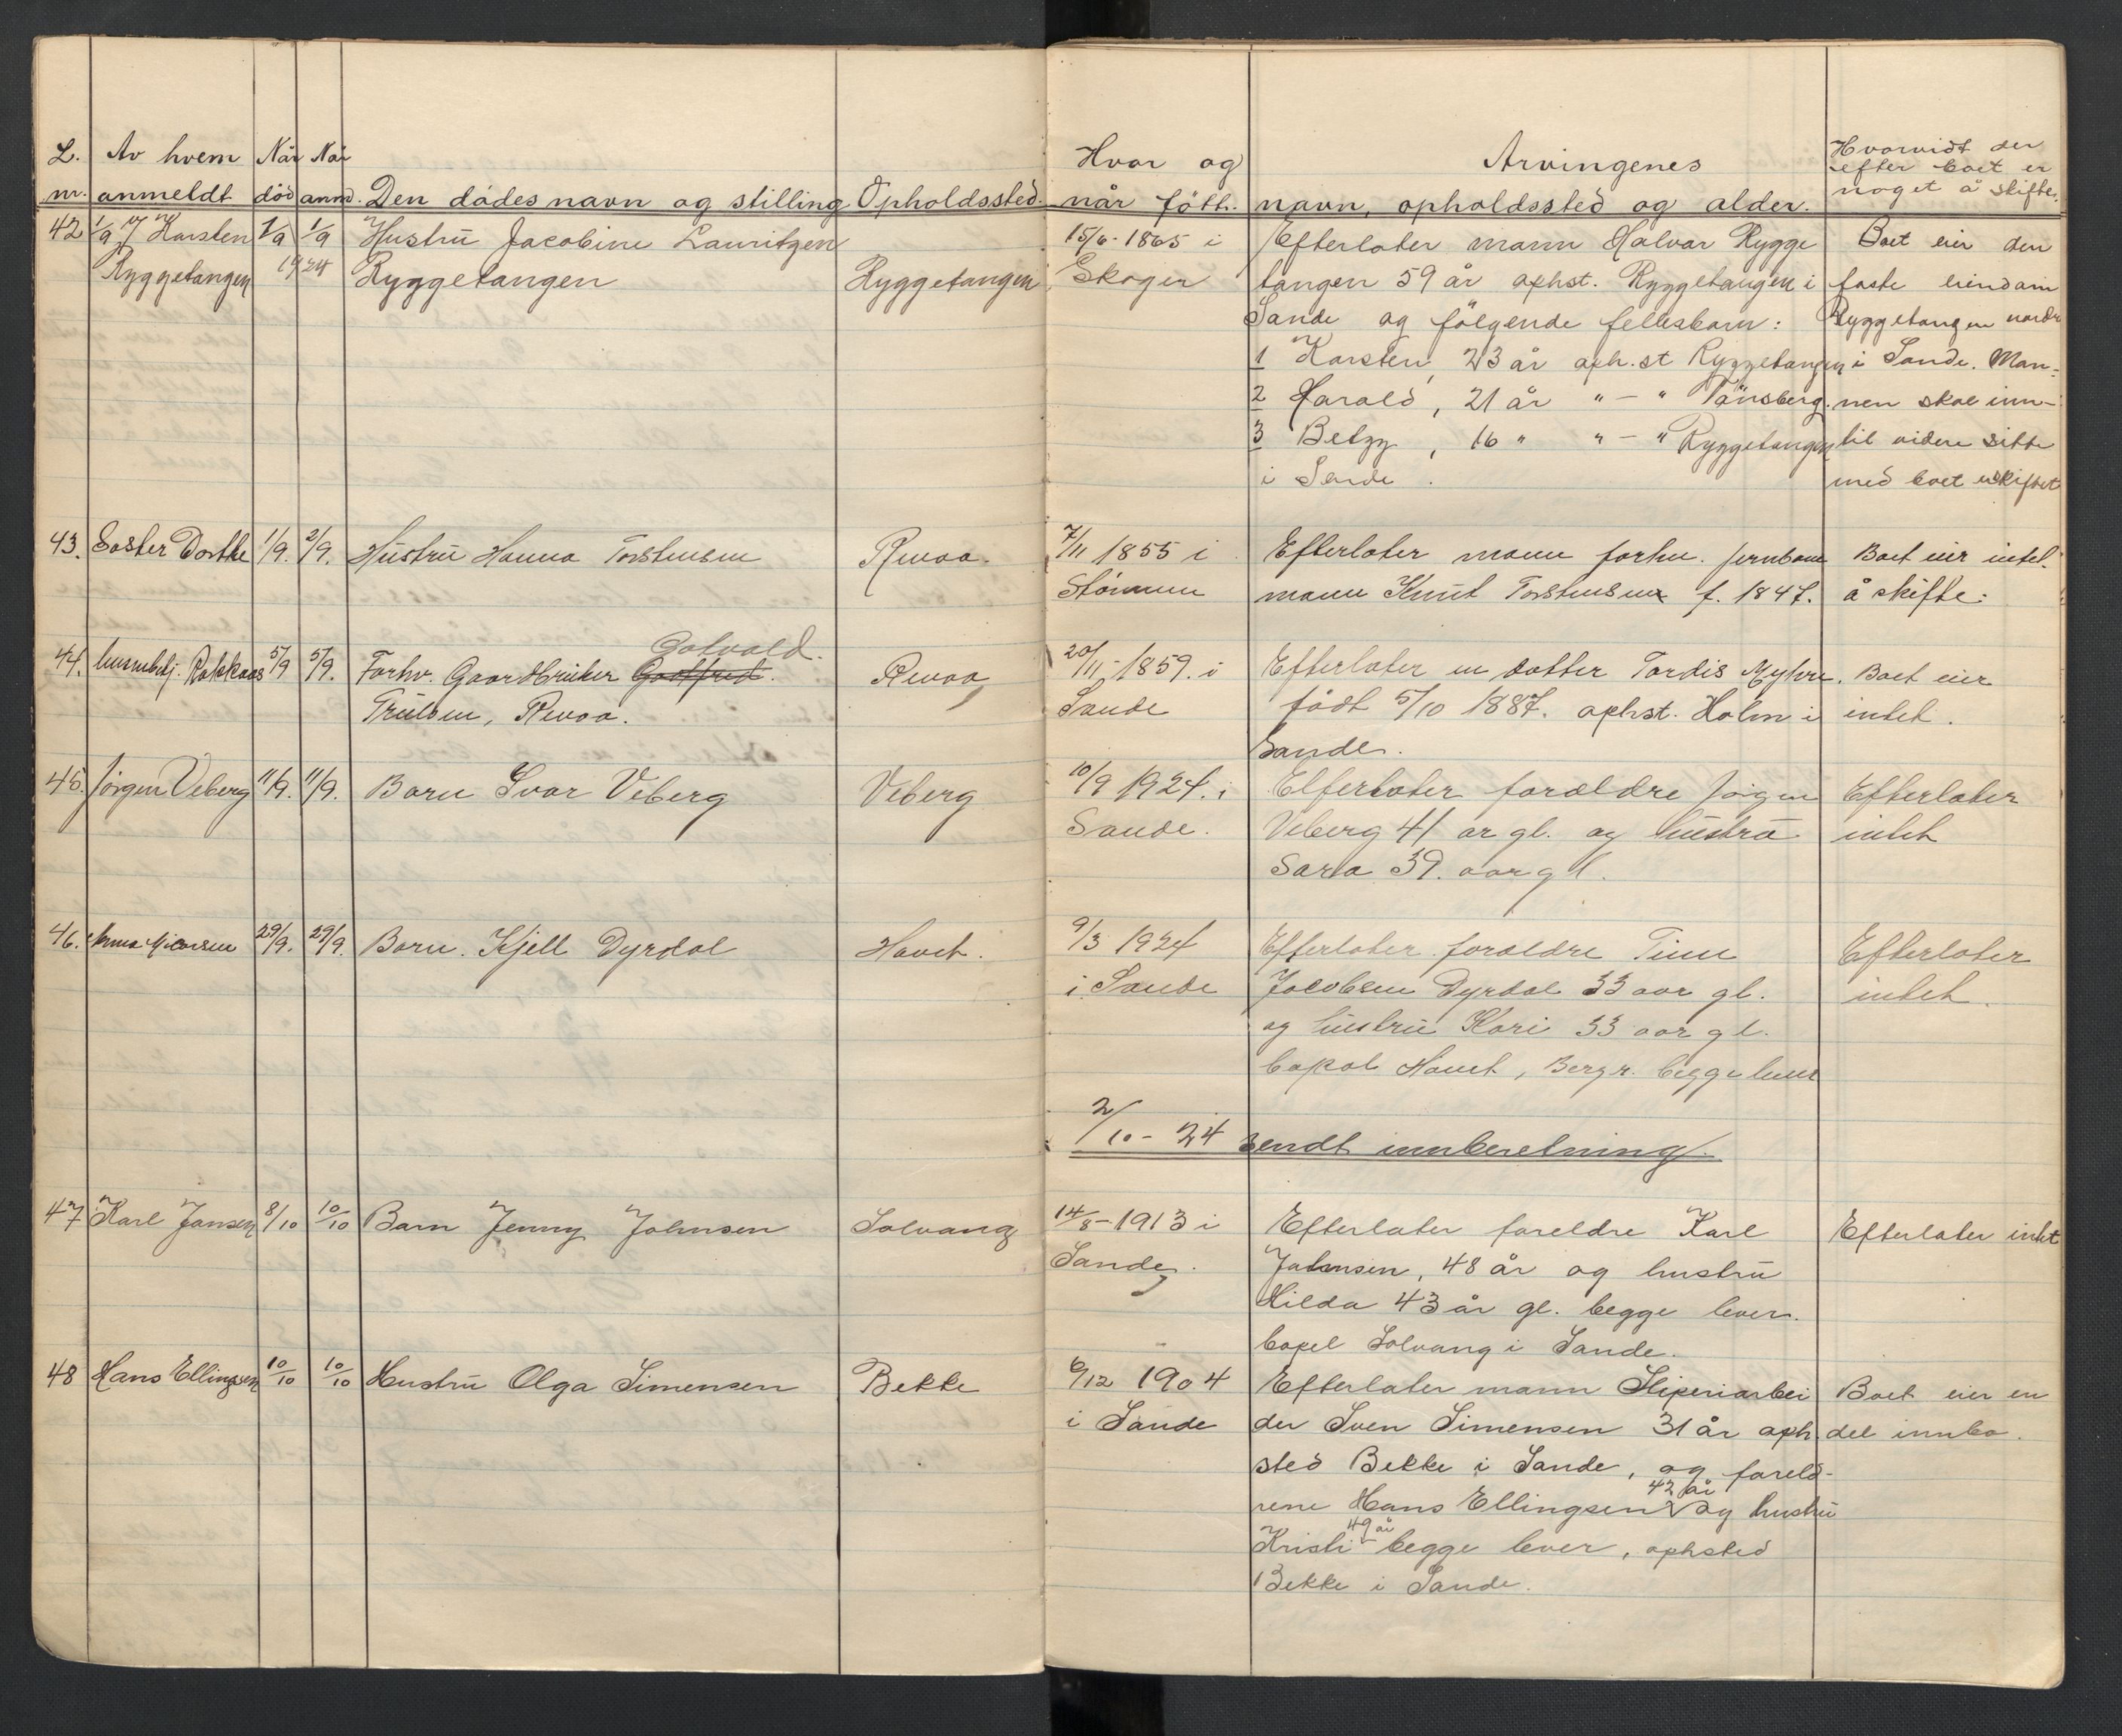 L. Av hvem När När
nr. anmeldt död anm. Den dödes navn og stilling Opholdssted.
42 1/9 Karsten 1/9 1/9 Hustru Jacobine Lauritzen
Ryggetangen 1924 Ryggetangen Ryggetangen
43. Søster Dorthe 1/9. 2/9. Hustru Hanna Torstensen Revaa.
Gotvald.
44. Rakkaas 5/9 5/9. Forhv. Gaardbruker Godtfred. Revaa
Trulsen, Revaa.
45. Jörgen Veberg 11/9. 11/9. Barn Ivar Veberg Veberg
46. 29/9. 29/9. Barn. Kjell Dyrdal Havet.
47 Karl Jansen 8/10 10/10 Barn Jenny Johnsen Solvang
48 Hans Ellingsen 10/10 10/10 Hustru Olga Simensen Bekke
Hvor og Arvingenes Hvorvidt der
efter boet er
når fött. navn, opholdssted og alder. noget å skifte.
15/6-1865 i Efterlater mann Halvar Rygge Boet eier den
Skoger tangen 59 år ophst. Ryggetangen i faste eiendom
Sande og fölgende fellesbarn: Ryggetangen nordre
1 Karsten, 23 år oph.st Ryggetangen i Sande. Man-
2 Harald, 21 år " - " Tönsberg. nen skal inn-
3 Betzy, 16 " " - " Ryggetangen til videre sitte
i Sande. med boet uskiftet
7/11 1855 i Efterlater mann forhv. jernbane Boet eier intet
Strömmen mann Knut Torstensen f. 1847. å skifte.
20/11-1859. i Efterlater en datter Tordis Myhre. Boet eier
Sande födt 5/10 1887. ophst. Holm i intet.
Sande.
10/9 1924. i Efterlater forældre Jörgen Efterlater
Sande. Veberg 41 ar gl. og hustru intet
Sara 39. aar gl.
9/3 1924 Efterlater foraldre Efterlater
i Sande Jacobsen Dyrdal 33 aar gl. intet.
og hustru Kari 33 aar gl.
bopæl Havet, Bergr. begge lever
2/10-24 sendt innberetning.
14/8-1913 i Efterlater foreldre Karl Efterlater intet
Sande. Johnsen, 48 år og hustru
Hilda 43 år gl. begge lever.
bopel Solvang i Sande.
6/12 1904 Efterlater mann Sliperiarbei Boet eier en
i Sande der Sven Simensen 31 år oph del innbo.
sted Bekke i Sande, og foreld-
42 år
rene Hans Ellingsen og hustru
49 år
Kristi begge lever, ophsted
Bekke i Sande.